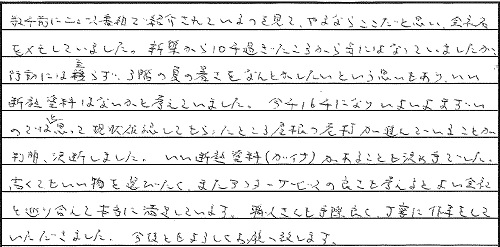 数年前にニュース番組で紹介されているのを見て、やるならここだと思い、会社名
をメモしていました。新築から10年過ぎたころから気になっていましたが、
行動には移らず、3階の夏の暑さをなんとかしたいという思いもあり、いい
断熱塗料はないかと考えていました。今年16年になりいよいよまずい
のではと思って現状確認してもらったところ屋根の劣化が進んでいることが
判明、決断しました。いい断熱塗料(ガイナ)があることを決め手でした。
高くてもいい物を選びたく、またアフターサービスの良さを考えるとよい会社
と巡り合えて本当に満足しています。職人さんも手際良く、丁寧に作業をして
いただきました。今後ともよろしくお願い致します。